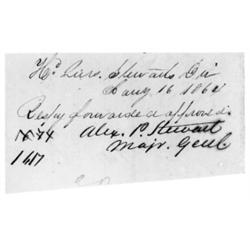 Hd Qurs. Stewarts Div
Jany 16 1864
Resply forwarded approved.
Alex. P. Stewart
Majr. Genl